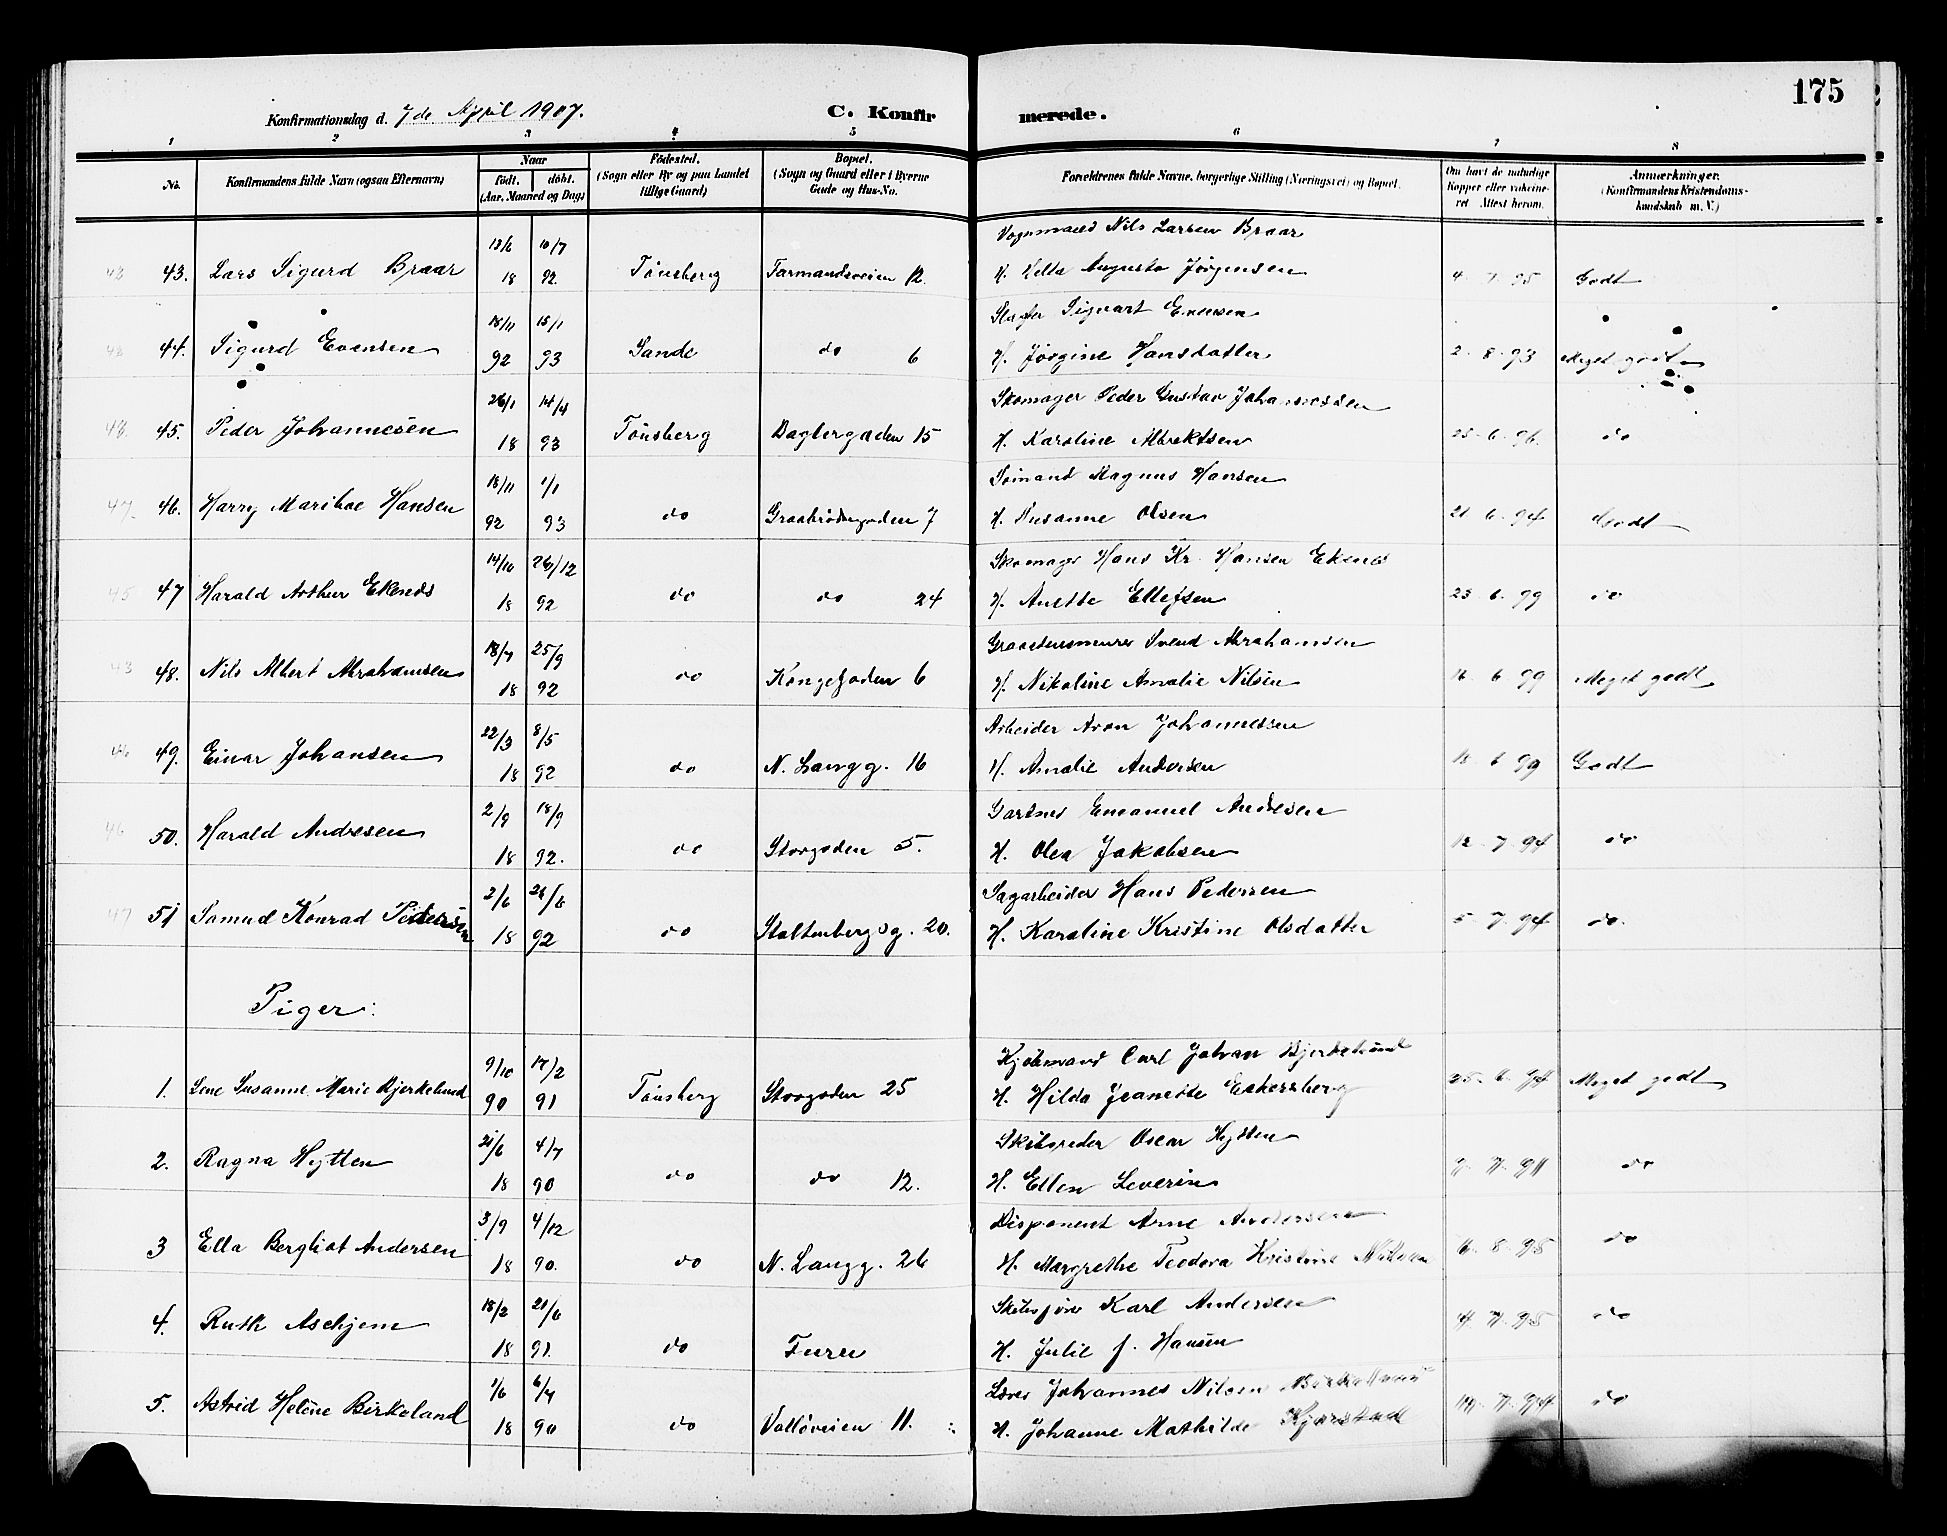 175
Konfirmationsdag d. 7de April 1907. C. Konfir merede.
1 2 3 4 5 6 7 8
No. Konfirmandens fulde Navn (ogsaa Efternavn) Naar født. døbt. (Aar, Maaned og Dag) Fødested. (Sogn eller By og paa Landet tillige Gaard) Bopæl. (Sogn og Gaard eller i Byerne Gade og Hus-No. Forældrenes fulde Navne, borgerlige Stilling (Næringsvei) og Bopæl. Om havt de naturlige Kopper eller vaccineret Attest herom. Anmærkninger. (Konfirmandens Kristendomskundskab m. V.)
13/6 10/7 Vognmand Nils Larsen Braar
43. Lars Sigurd Braar 18 92. Tønsberg Farmandsveien 12. H. Augusta Jørgensen 4 7 95 Godt
18/11 15/1 Sigvart Evensen
44. Sigurd Evensen 92 93 Sande do 6 H. Jørgine Hansdatter 2 8 93 Meget godt
26/1 14/4 Skomager Peder Gustav Johannessen
45. Peder Johannesen 18 93 Tønsberg 15 H. Karoline Albrektsen 25 6 96. do
18/11 1/1 Sømand Magnus Hansen
46. Harry Hansen 92 93 do Graabrødregaden 7 H. Susanne Olsen 21 6 94 Godt
14/10 26/12 Skomager Hans Kr. Hansen Ekenes
47 Harald Arthur Ekenes 18 92 do do 24 H. Anette Ellefsen 23 6 99 do
18/7 25/9 Svend Abrahamsen
48. Nils Albert Abrahamsen 18 92 do Kongegaden 6 H. Nikoline Amalie Nilsen 16 6 99 Meget godt
22/3 8/5 Arbeider Aron Johannessen
49. Einar Johansen 18 92 do N. Langg. 16 H. Amalie Andersen 6 99 Godt
2/9 18/9 Gartner Emanuel Andresen
50. Harald Andresen 18 92. do Storgaden 5. H. Olea Jakobsen 12 7 94 do
2/6 Sagarbeider Hans Pedersen
51 Samuel Konrad Pedersen 18 92 do Stoltenbergsg. 20. H. Karoline Kristine Olsdatter 5 7 94 do.
Piger:
9/10 17/2 Kjøbmand Carl Johan Bjerkelund
1. Lene Susanne Marie Bjerkelund 90 91 Tønsberg Storgaden 25 H. Hilda Jeanette Eckersberg 25 6 94 Meget godt
21/6 4/7 Skibsreder Oscar Hytten
2. Ragna Hytten 18 90 do do 12. H. Ellen Severin do
3/9 4/12 Disponent Arne Andersen
3 Ella Bergliot Andersen 18 90. do N. Langg. 26 H. Margrethe Teodora Kristine 6. 8. 95 do
18/2 21/6 Karl Andersen
4. Ruth Aschjem 18 91. do Furu H. Julie J. Hansen 4. 7. 95 do
1/6 6/7 Lærer Johannes Nilsen Birkeland
5. Astrid Helene Birkeland 18 90 do Valløveien 11. H. Johanne Mathilde Kjørstad 7. 94 do